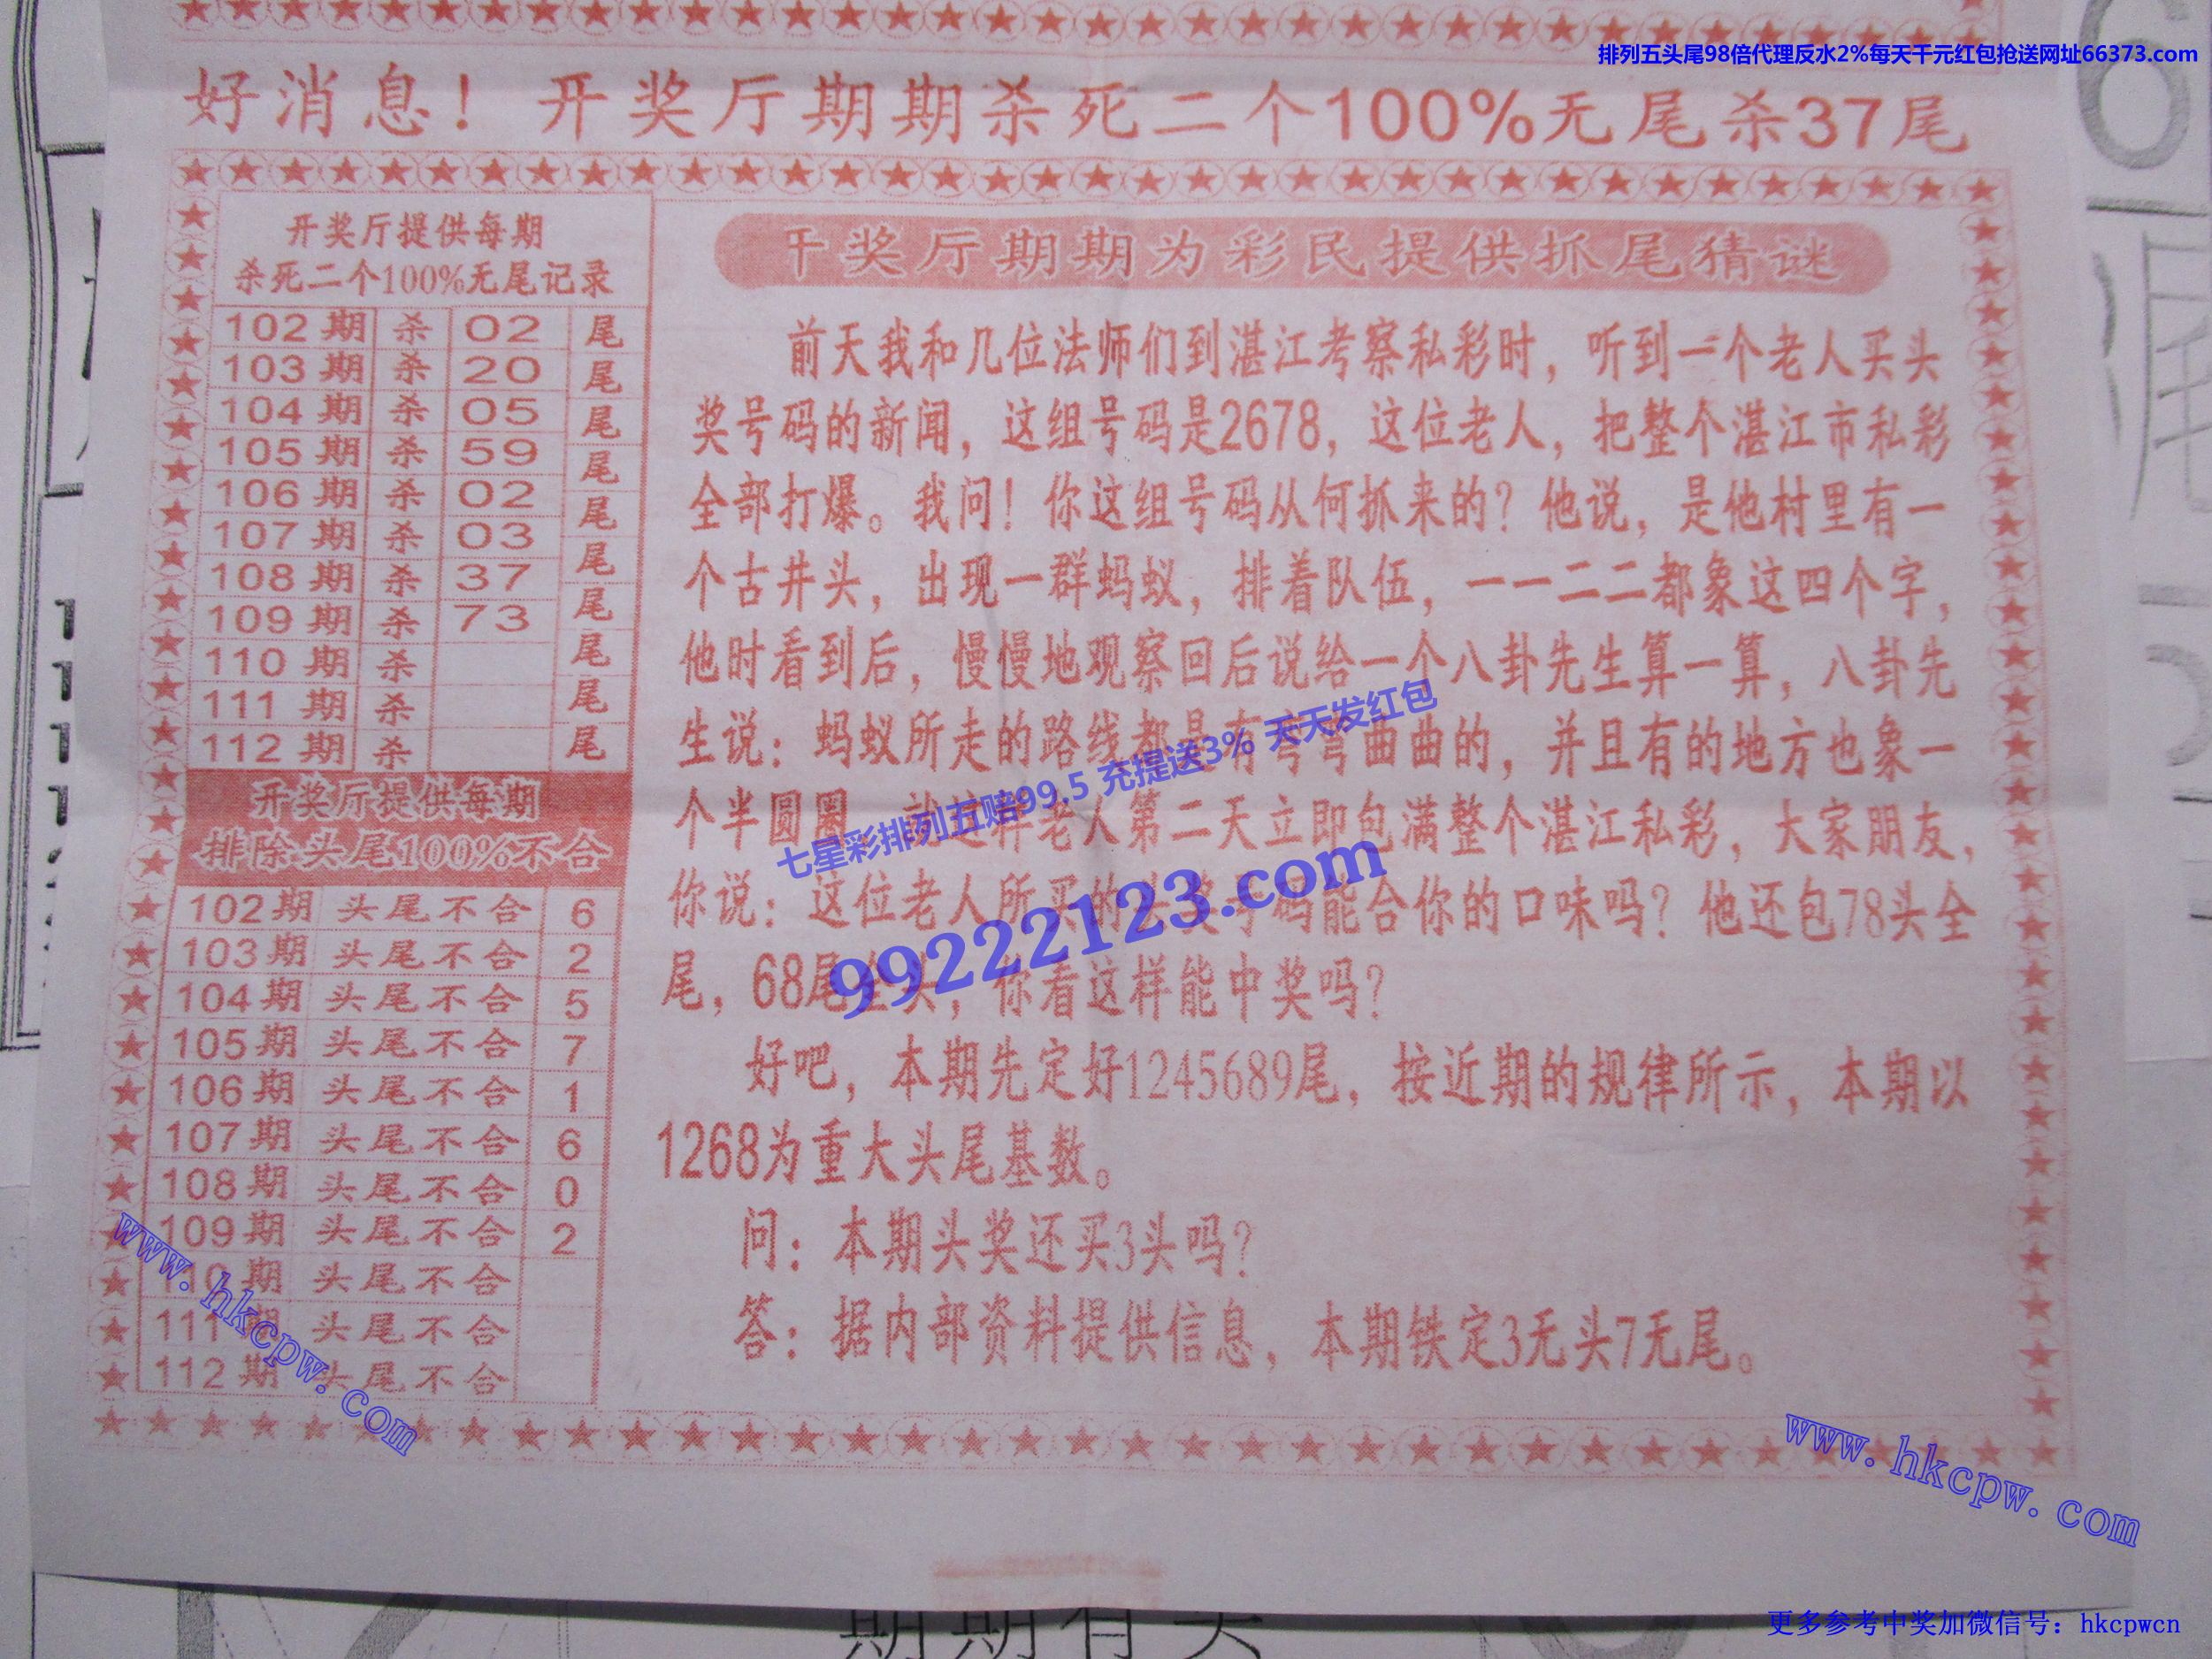 排列五头尾98倍代理反水2%每天千元红包抢送网址66373.com
好消息！开奖厅期期杀死二个100%无尾杀37尾
开奖厅提供每期
杀死二个100%无尾记录
102期 杀 02 尾
103期 杀 20 尾
104期 杀 05 尾
105期 杀 59 尾
106期 杀 02 尾
107期 杀 03 尾
108期 杀 37 尾
109期 杀 73 尾
110期 杀 尾
111期 杀 尾
112期 杀 尾
开奖厅提供每期
排除头尾100%不合
102期 头尾不合 6
103期 头尾不合 2
104期 头尾不合 5
105期 头尾不合 7
106期 头尾不合 1
107期 头尾不合 6
108期 头尾不合 0
109期 头尾不合 2
110期 头尾不合
111期 头尾不合
112期 头尾不合
干奖厅期期为彩民提供抓尾猜谜
前天我和几位法师们到湛江考察私彩时，听到一个老人买头
奖号码的新闻，这组号码是2678，这位老人，把整个湛江市私彩
全部打爆。我问！你这组号码从何抓来的？他说，是他村里有一
个古井头，出现一群蚂蚁，排着队伍，一一二二都象这四个字，
他时看到后，慢慢地观察回后说给一个八卦先生算一算，八卦先
生说：蚂蚁所走的路线都是有弯弯曲曲的，并且有的地方也象一
个半圆圈，就这样老人第二天立即包满整个湛江私彩，大家朋友，
你说：这位老人所买的头奖号码能合你的口味吗？他还包78头全
尾，68尾全头，你看这样能中奖吗？
好吧，本期先定好1245689尾，按近期的规律所示，本期以
1268为重大头尾基数。
问：本期头奖还买3头吗？
答：据内部资料提供信息，本期铁定3无头7无尾。
七星彩排列五赔99.5 充提送3% 天天发红包
99222123.com
www.hkcpw.com
www.hkcpw.com
期期有头
更多参考中奖加微信号：hkcpwcn